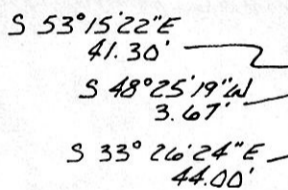 S 53°15'22"E
41.30'
S 48°25'19"W
3.67'
S 33°26'24"E
44.00'